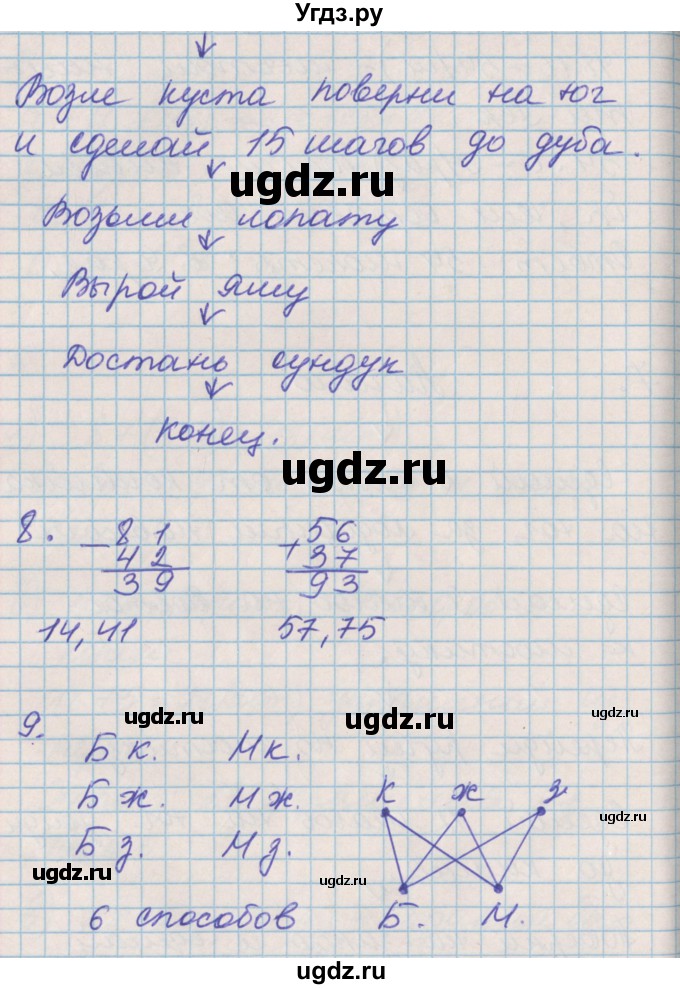 Угдз.ру
Возле куста поверни на юг
и сделай 15 шагов до дуба.
ugdz.ru
Возьми лопату
Вырой яму
Достань сундук
конец.
ugdz.ru
8. - 81 + 56
42 37
39 93
14, 41 57, 75
9. ugdz.ru ugdz.ru ugdz.ru
Б к. М к.
Б ж. М ж. К ж з
ugdz.ru
Б з. М з.
ugdz.ru ugdz.ru
6 способов Б. М.
ugdz.ru